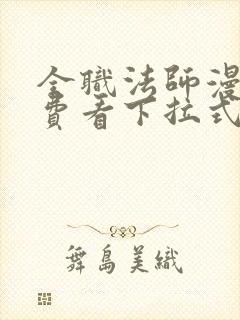 全職法師漫
費看下拉式
舞島美織